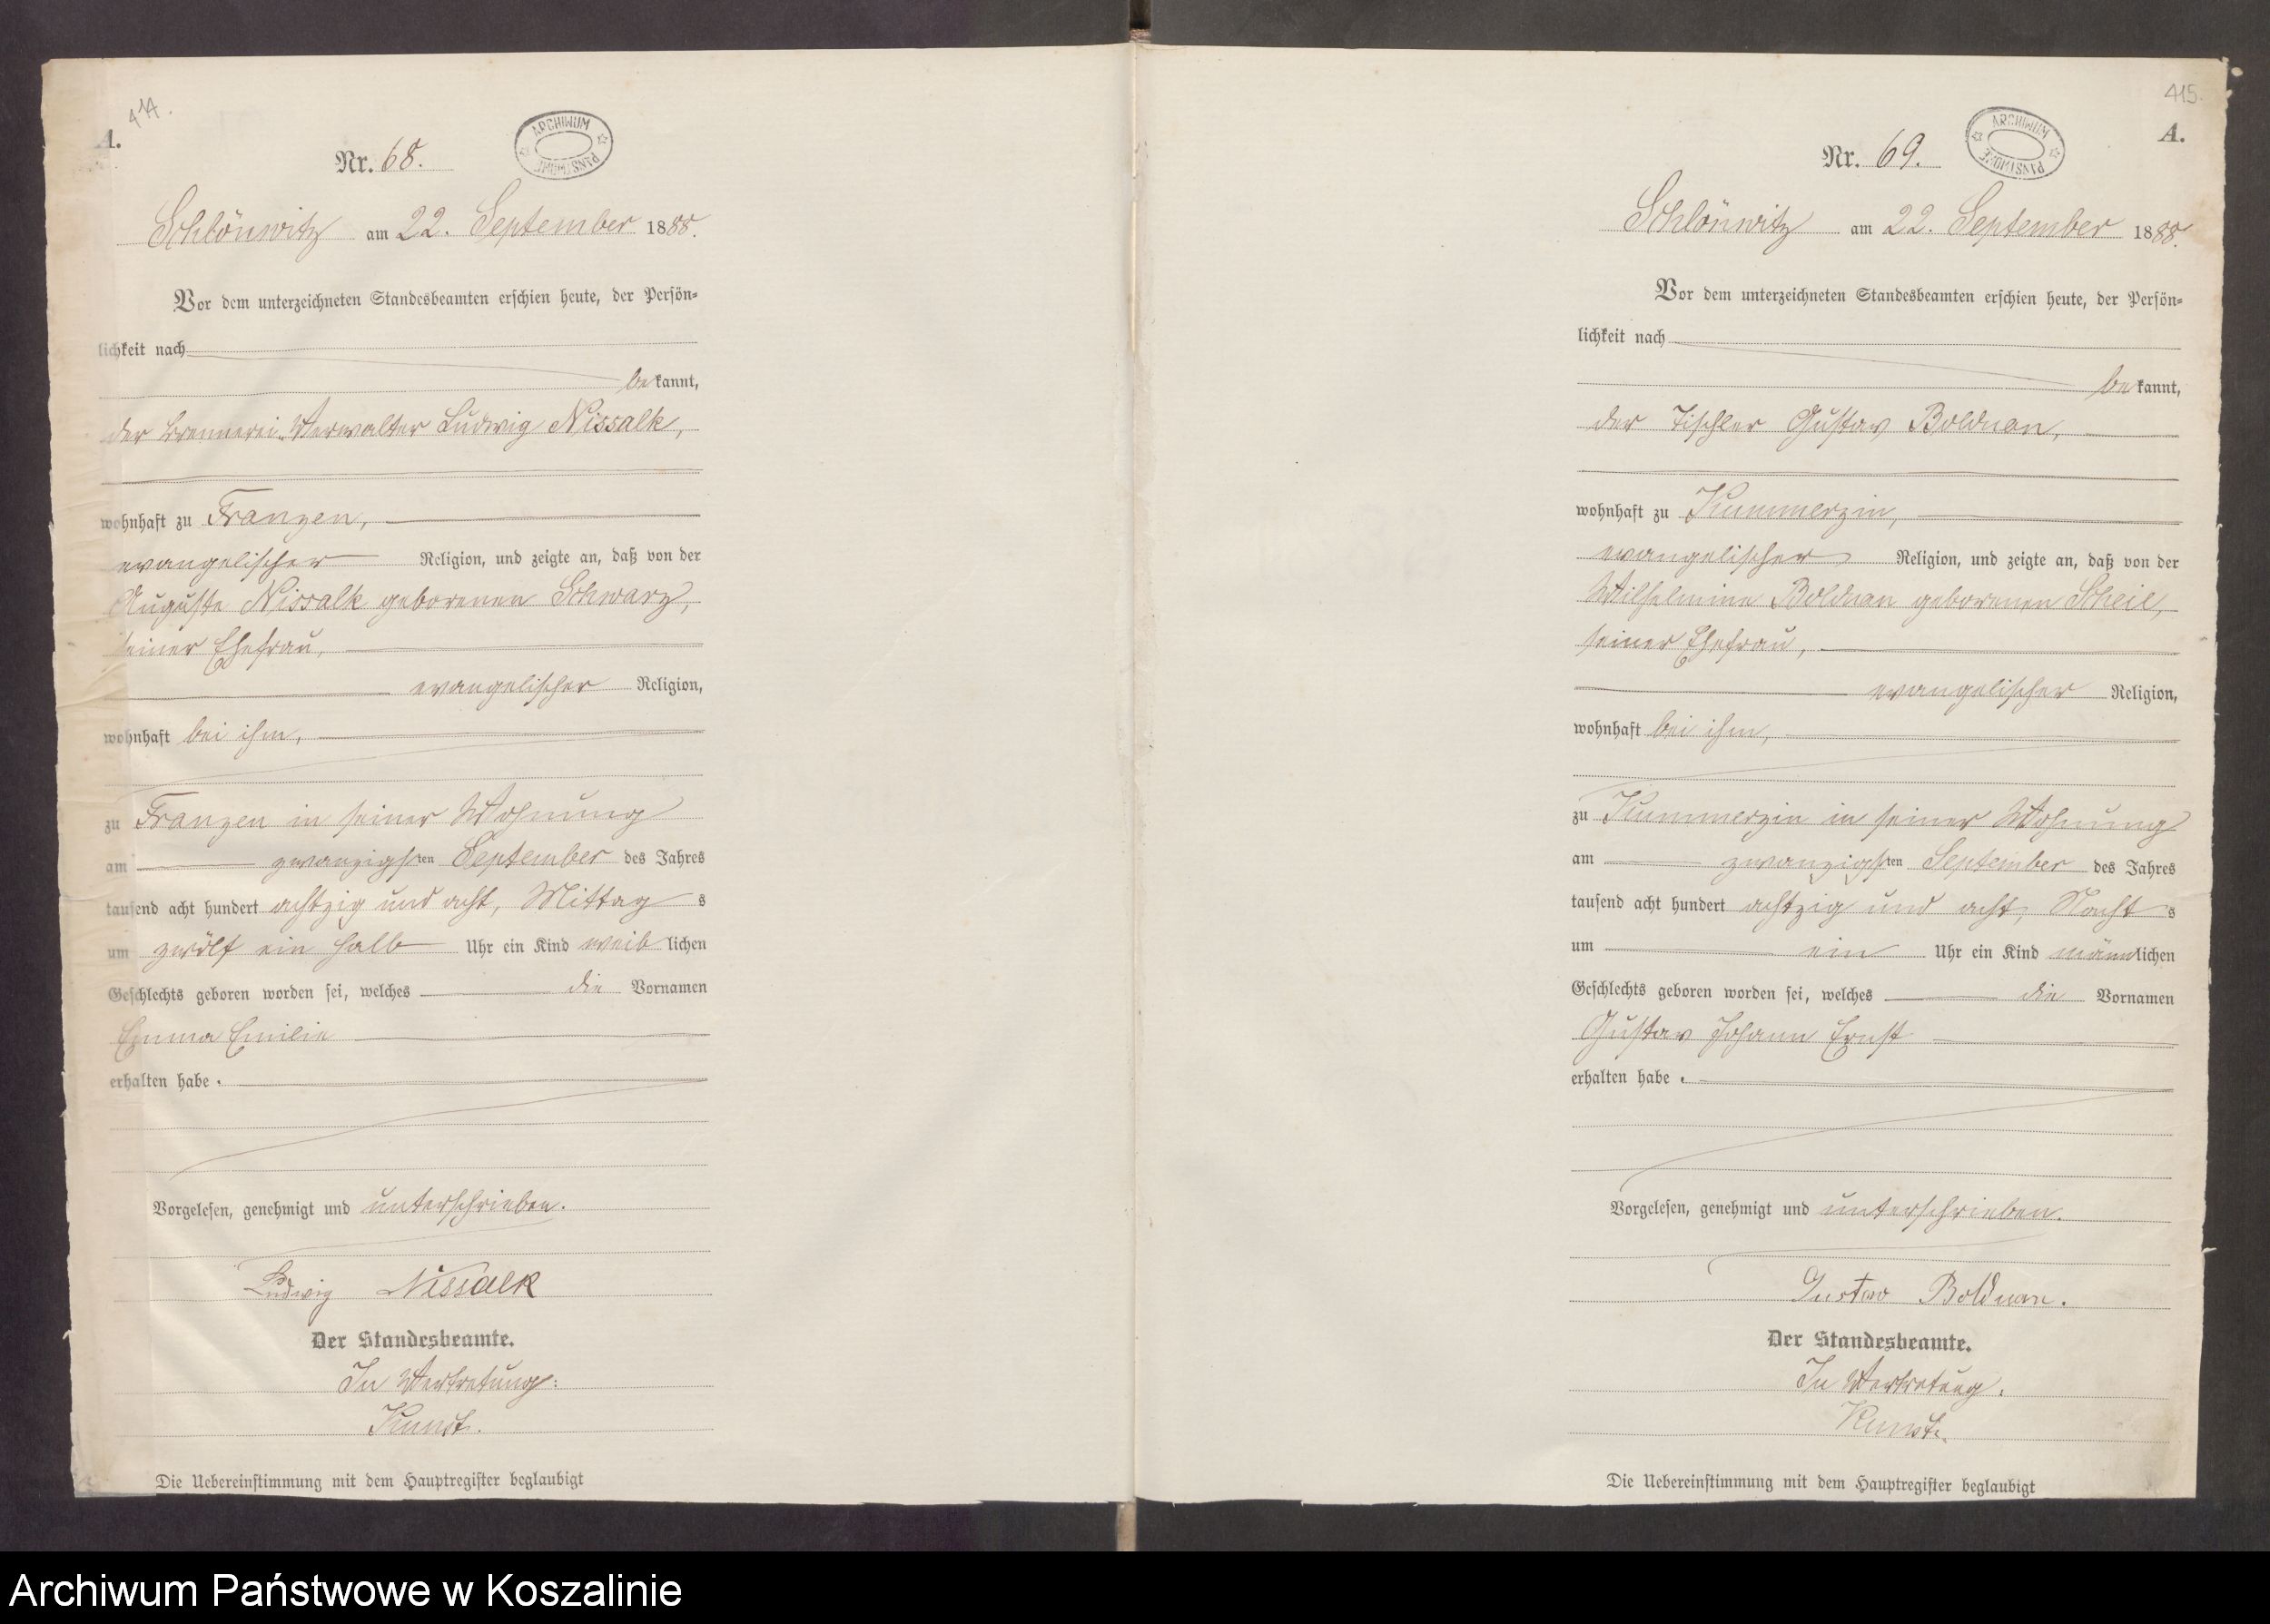 414.
A.
Nr. 68.
ARCHIWUM PAŃSTWOWE
Schlönwitz am 22. September 1888.
Vor dem unterzeichneten Standesbeamten erschien heute, der Persön-
lichkeit nach
bekannt,
der Brennerei-Verwalter Ludwig Nissalk,
wohnhaft zu Franzen,
evangelischer Religion, und zeigte an, daß von der
Auguste Nissalk geborenen Schwarz,
seiner Ehefrau,
evangelischer Religion,
wohnhaft bei ihm,
zu Franzen in seiner Wohnung
am zwanzigsten September des Jahres
tausend acht hundert achtzig und acht, Mittags
um zwölf ein halb Uhr ein Kind weiblichen
Geschlechts geboren worden sei, welches die Vornamen
Emma Emilie
erhalten habe.
Vorgelesen, genehmigt und unterschrieben.
Ludwig Nissalk
Der Standesbeamte.
In Vertretung:
Kundt.
Die Uebereinstimmung mit dem Hauptregister beglaubigt
415.
A.
Nr. 69.
ARCHIWUM PAŃSTWOWE
Schlönwitz am 22. September 1888.
Vor dem unterzeichneten Standesbeamten erschien heute, der Persön-
lichkeit nach
bekannt,
der Tischler Gustav Bolduan,
wohnhaft zu Kummerzin,
evangelischer Religion, und zeigte an, daß von der
Wilhelmine Bolduan geborenen Scheil,
seiner Ehefrau,
evangelischer Religion,
wohnhaft bei ihm,
zu Kummerzin in seiner Wohnung
am zwanzigsten September des Jahres
tausend acht hundert achtzig und acht, Nachts
um ein Uhr ein Kind männlichen
Geschlechts geboren worden sei, welches die Vornamen
Gustav Johann Ernst
erhalten habe.
Vorgelesen, genehmigt und unterschrieben.
Gustav Bolduan.
Der Standesbeamte.
In Vertretung.
Kundt.
Die Uebereinstimmung mit dem Hauptregister beglaubigt
Archiwum Państwowe w Koszalinie